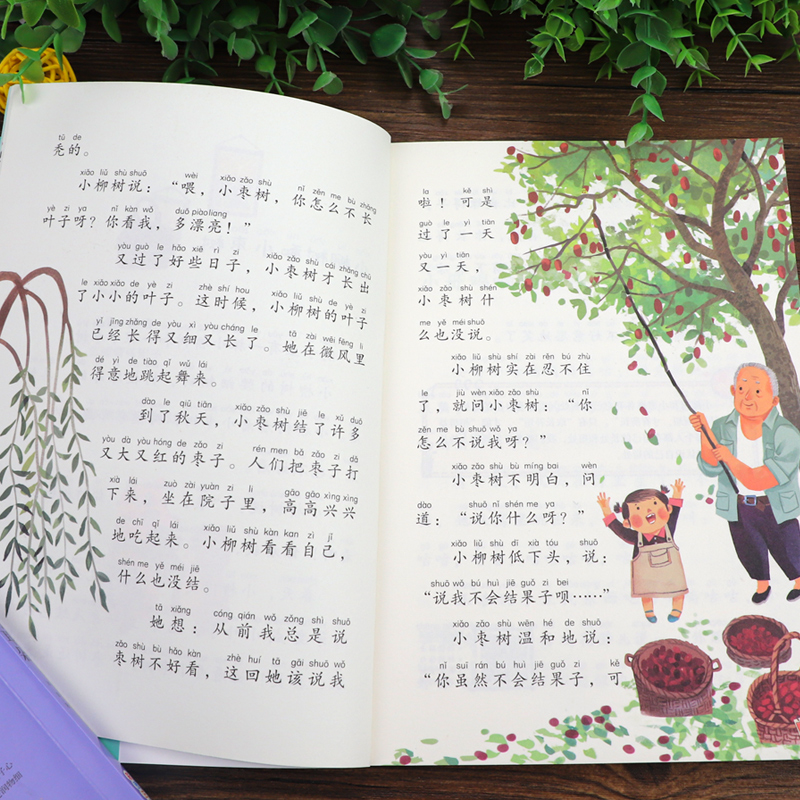 tū de
秃的。
xiǎo liǔ shù shuō wèi xiǎo zǎo shù nǐ zěn me bù zhǎng
小柳树说：“喂，小枣树，你怎么不长
yè zi ya nǐ kàn wǒ duō piào liang
叶子呀？你看我，多漂亮！”
yòu guò le hǎo xiē rì zi xiǎo zǎo shù cái zhǎng chū
又过了好些日子，小枣树才长出
le xiǎo xiǎo de yè zi zhè shí hou xiǎo liǔ shù de yè zi
了小小的叶子。这时候，小柳树的叶子
yǐ jīng zhǎng de yòu xì yòu cháng le tā zài wēi fēng li
已经长得又细又长了。她在微风里
dé yì de tiào qǐ wǔ lái
得意地跳起舞来。
dào le qiū tiān xiǎo zǎo shù jiē le xǔ duō
到了秋天，小枣树结了许多
yòu dà yòu hóng de zǎo zi rén men bǎ zǎo zi dǎ
又大又红的枣子。人们把枣子打
xià lái zuò zài yuàn zi li gāo gāo xìng xìng
下来，坐在院子里，高高兴兴
de chī qǐ lái xiǎo liǔ shù kàn kan zì jǐ
地吃起来。小柳树看看自己，
shén me yě méi jiē
什么也没结。
tā xiǎng cóng qián wǒ zǒng shì shuō
她想：从前我总是说
zǎo shù bù hǎo kàn zhè huí tā gāi shuō wǒ
枣树不好看，这回她该说我
la kě shì
啦！可是
guò le yì tiān
过了一天
yòu yì tiān
又一天，
xiǎo zǎo shù shí
小枣树什
me yě méi shuō
么也没说。
xiǎo liǔ shù shí zài rěn bú zhù
小柳树实在忍不住
le jiù wèn xiǎo zǎo shù nǐ
了，就问小枣树：“你
zěn me bù shuō wǒ ya
怎么不说我呀？”
xiǎo zǎo shù bù míng bai wèn
小枣树不明白，问
dào shuō nǐ shén me ya
道：“说你什么呀？”
xiǎo liǔ shù dī xià tóu shuō
小柳树低下头，说：
shuō wǒ bú huì jiē guǒ zi bei
“说我不会结果子呗……”
xiǎo zǎo shù wēn hé de shuō
小枣树温和地说：
nǐ suī rán bú huì jiē guǒ zi kě
“你虽然不会结果子，可